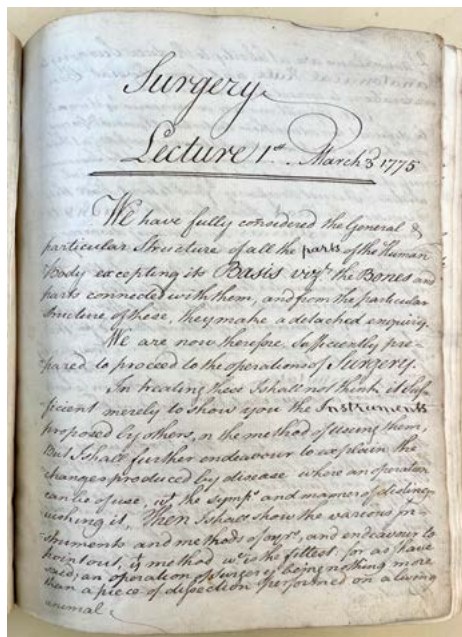 Surgery
Lecture 1st. March 3 1775
We have fully considered the General &
particular Structure of all the parts of the Human
Body excepting its Basis vizt. the Bones and
parts connected with them, and from the particular
structure of these, they make a detached enquiry.
We are now therefore Sufficiently pre-
-pared to proceed to the operations of Surgery.
In treating these I shall not think it Suf-
ficient merely to show you the Instruments
proposed by others, or the method of using them,
But I shall further endeavour to explain the
changes produced by disease where an operation
can be of use, wt. the Sympt. and manner of disting-
uishing it, Then I shall show the various in-
-struments and methods of and endeavour to
point out, method wc. is the fittest. for as I have
said; an operation of Surgery being nothing more
than a piece of dissection performed on a living
animal